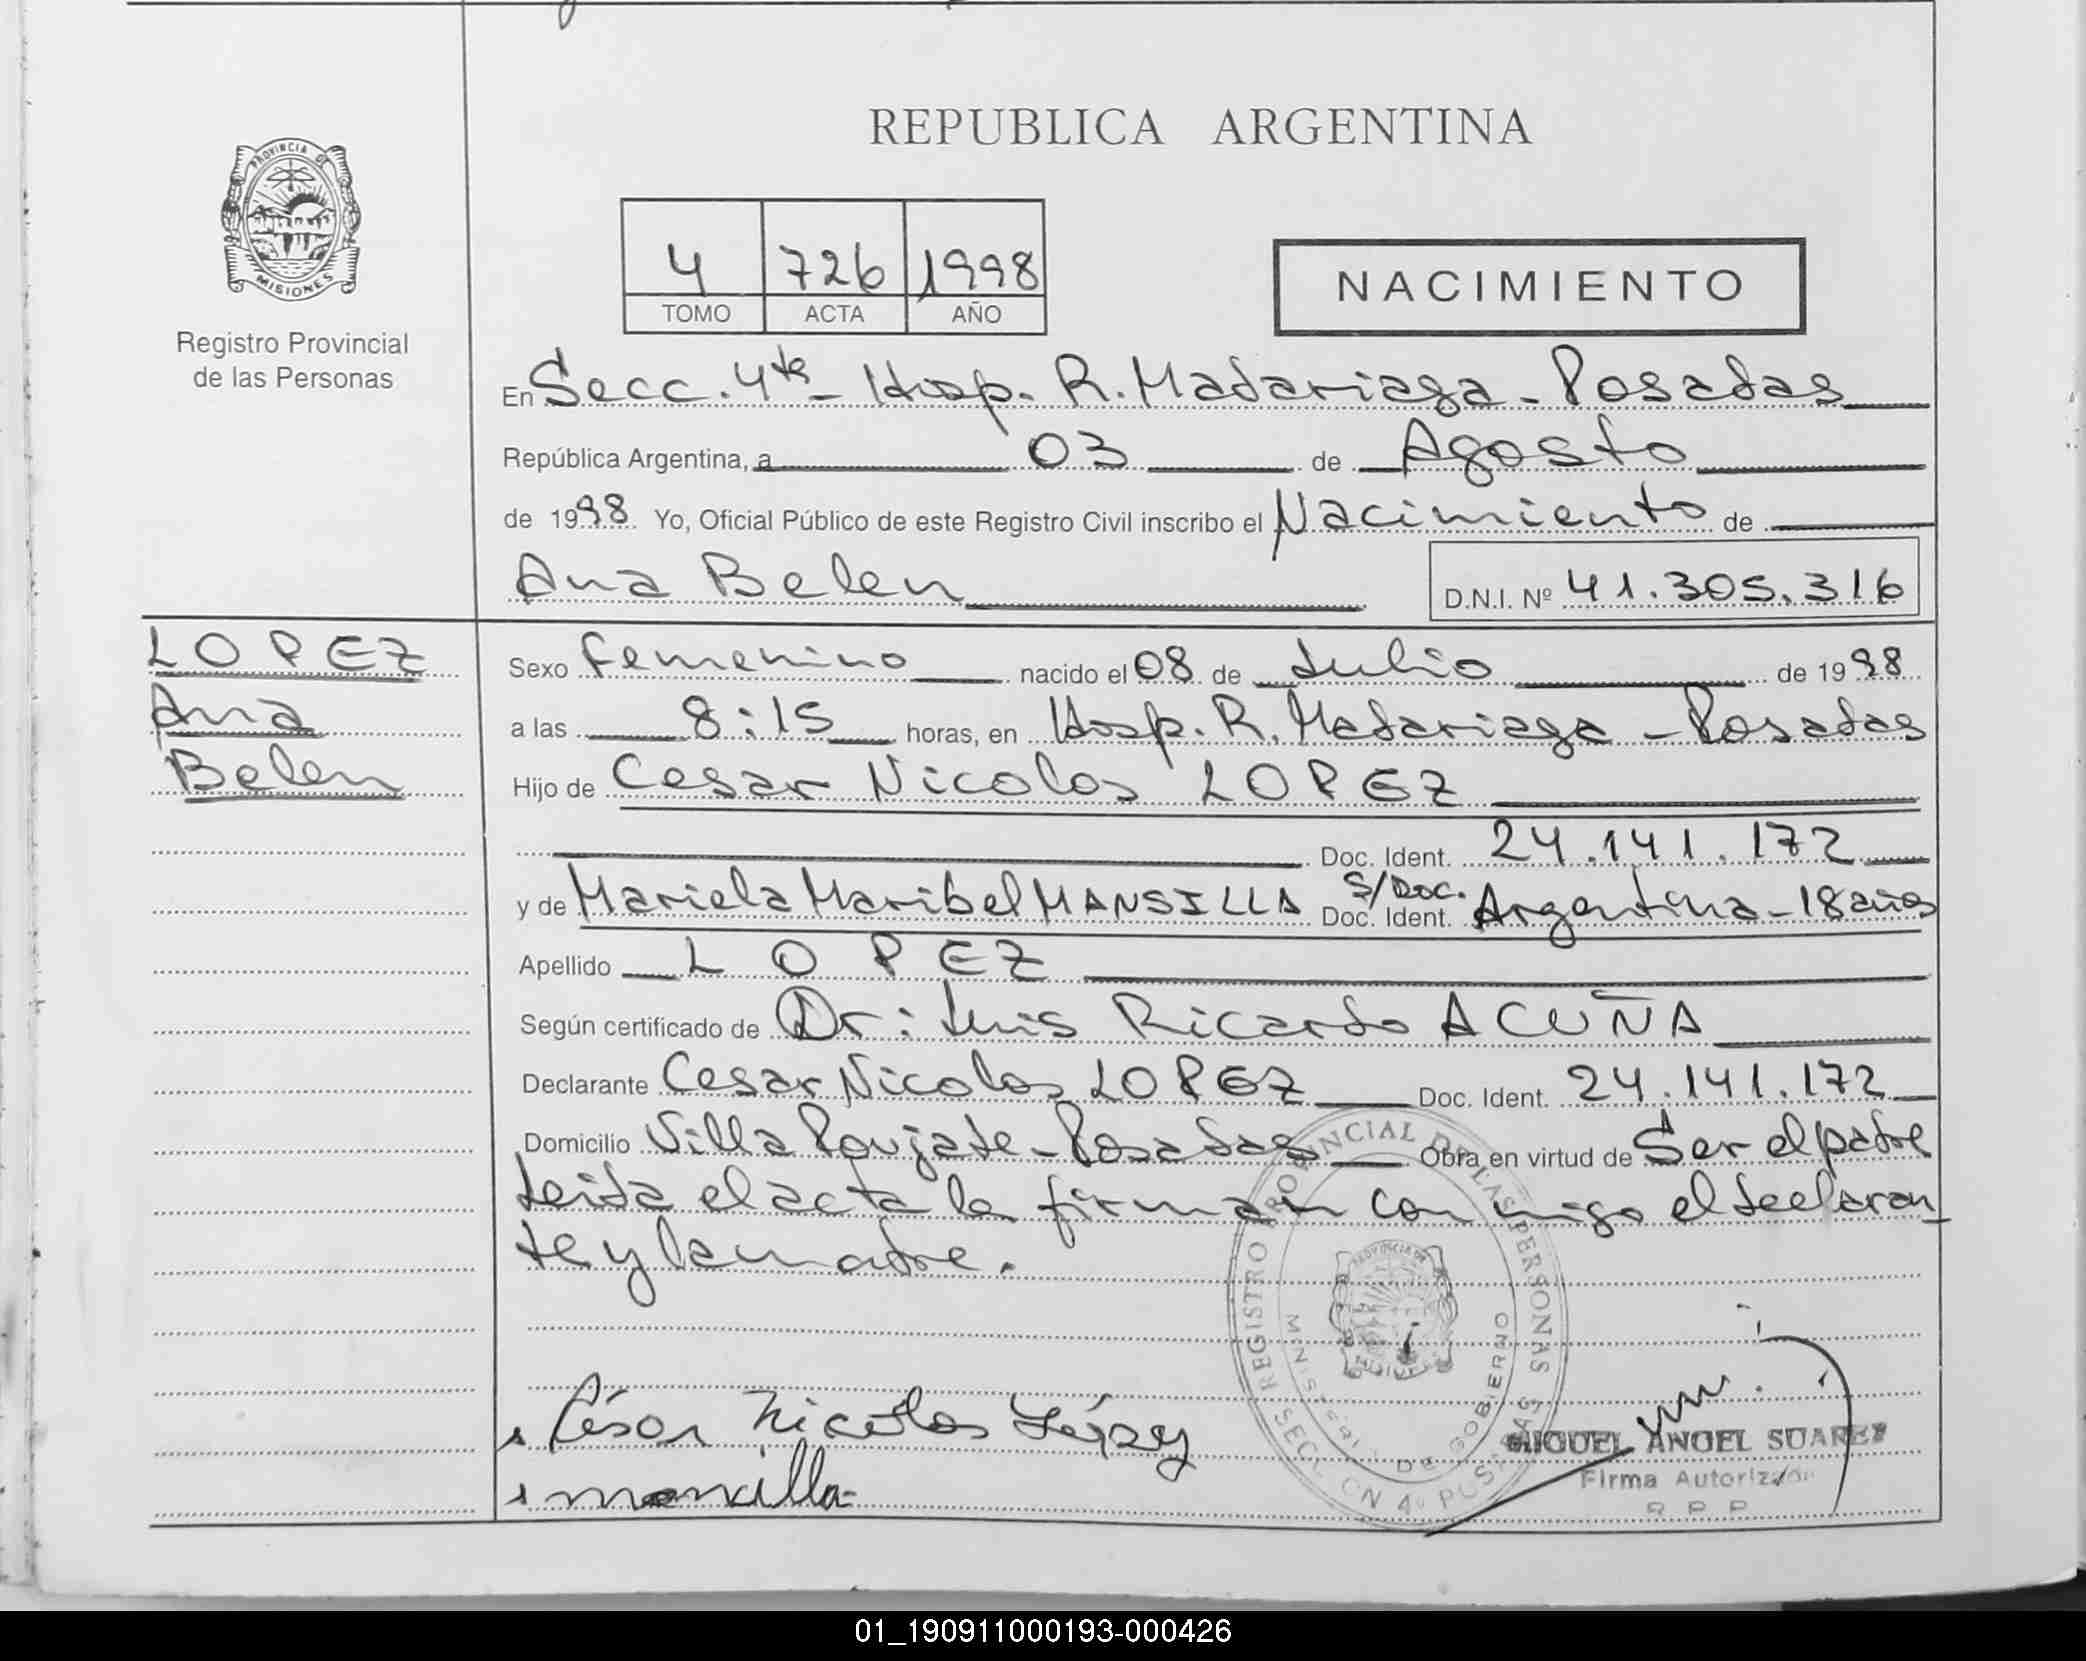 REPUBLICA ARGENTINA
PROVINCIA DE
MISIONES
Registro Provincial
de las Personas
4 726 1998
TOMO ACTA AÑO
NACIMIENTO
En Secc. 4ta - Hosp. R. Madariaga - Posadas
República Argentina, a 03 de Agosto
de 1998 Yo, Oficial Público de este Registro Civil inscribo el Nacimiento de
Ana Belen D.N.I. Nº 41.305.316
LOPEZ
Ana
Belen
Sexo femenino nacido el 08 de Julio de 1998
a las 8:15 horas, en Hosp. R. Madariaga - Posadas
Hijo de Cesar Nicolas LOPEZ
Doc. Ident. 24.141.172
y de Mariela Maribel MANSILLA S/Doc. Doc. Ident. Argentina - 18 años
Apellido LOPEZ
Según certificado de Dr: Luis Ricardo ACUÑA
Declarante Cesar Nicolas LOPEZ Doc. Ident. 24.141.172
Domicilio Villa Poujade - Posadas Obra en virtud de Ser el padre
Leida el acta la firman conmigo el declaran_
te y la madre.
REGISTRO PROVINCIAL DE LAS PERSONAS
MINISTERIO DE GOBIERNO
SECCION 4º POSADAS
César Nicolas López
mansilla
MIGUEL ANGEL SUAREZ
Firma Autorizada
R. P. P.
01_190911000193-000426